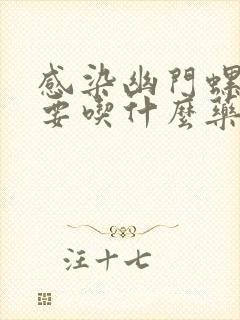 感染幽門螺
要喫什麼藥
汪十七